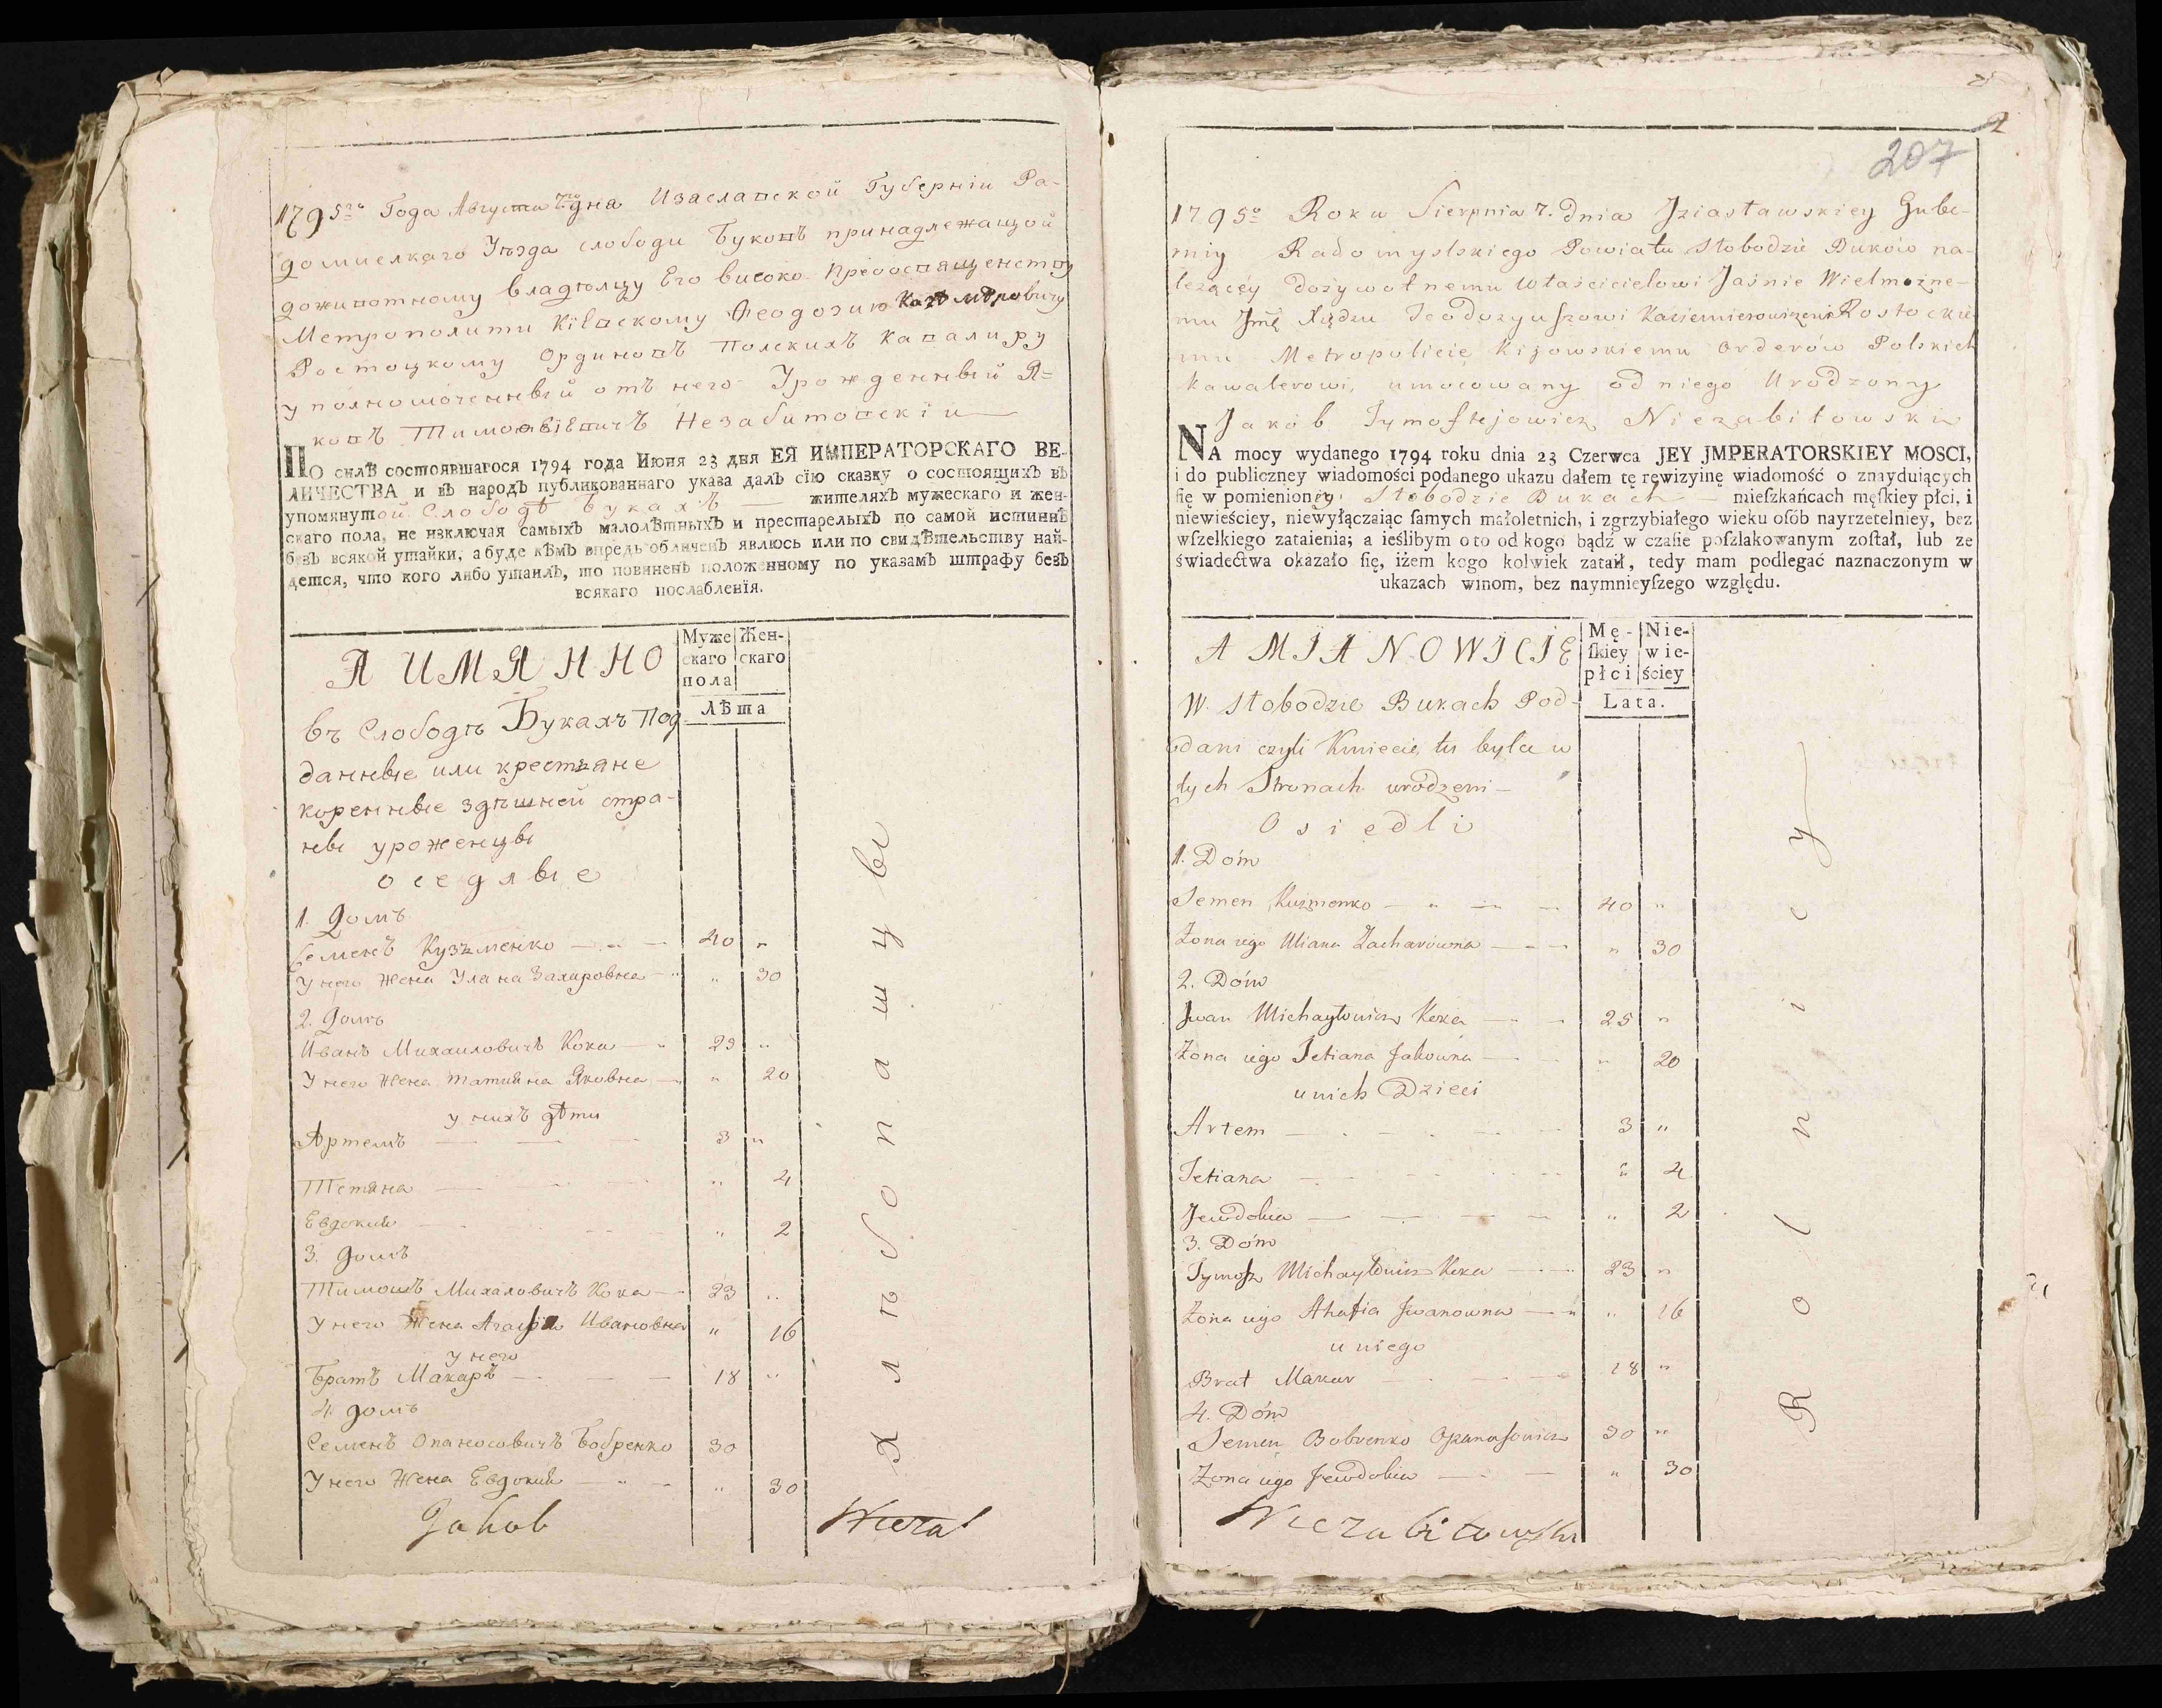 1795го Года Августа 7го дня Изаславской Губерніи Ра-
домислкаго Уѣзда слободи Буковъ принадлежащой
доживотному владѣлцу Его високо Преосвященству
Метрополити Кіевскому Феодозию Казимѣровичу
Ростоцкому Ординовъ Полскихъ Кавалиру
уполномоченный отъ него Урожденный Я=
ковъ Тимофѣевичъ Незабитовскій
ПО силѣ состоявшагося 1794 года Июня 23 дня ЕЯ ИМПЕРАТОРСКАГО ВЕ-
ЛИЧЕСТВА и въ народъ публикованнаго указа далъ сїю сказку о состоящихъ въ
упомянутой Слободѣ Букахъ жителяхъ мужескаго и жен-
скаго пола, не изключая самыхъ малолѣтныхъ и престарелыхъ по самой истиннѣ
безъ всякой утайки, а буде кѣмъ впредь обличенъ явлюсь или по свидѣтельству най-
дется, что кого либо утаилъ, то повиненъ положенному по указамъ штрафу безъ
всякаго послабленїя.
А ИМЯННО
Муже скаго пола
Жен- скаго
Лѣта
въ Слободѣ Букахъ Под-
данные или крестьяне
коренные здѣшней стра-
ны уроженцы
оседлые
1. Домъ
Семенъ Кузьменко 40 "
У него жена Улана Захаровна " 30
2. Домъ
Иванъ Михаиловичъ Кока 25 "
У него жена Татияна Яковна " 20
у нихъ дѣти
Артемъ 3 "
Тетяна " 4
Евдокия " 2
3. домъ
Тимошъ Михаловичъ Кока 23 "
У него жена Агафия Ивановна " 16
у него
Братъ Макаръ 18 "
4. домъ
Семенъ Опанасовичъ Бобренко 30
У него жена Евдокия " 30
Хлѣбопашцы
Jakob
207
1795o Roku Sierpnia 7. dnia Jziasławskiey Gube-
rniy Radomyslskiego Powiatu Słobodzie Buków na-
leżącey dożywotnemu właścicielowi Jaśnie Wielmożne-
mu Jmć Xiędzu Teodozyuszowi Kazimierowiczowi Rostockie
mu Metropolicie Kijowskiemu Orderów Polskich
Kawalerowi, umocowany od niego Urodzony
Jakób Tymoftejowicz Niezabitowski
NA mocy wydanego 1794 roku dnia 23 Czerwca JEY JMPERATORSKIEY MOSCI,
i do publiczney wiadomości podanego ukazu dałem tę rewizyinę wiadomość o znayduiących
ſię w pomienioney Słobodzie Bukach mieſzkańcach męſkiey płci, i
niewieściey, niewyłączaiąc ſamych małoletnich, i zgrzybiałego wieku oſób nayrzetelniey, bez
wſzelkiego zataienia; a ieślibym o to od kogo bądź w czaſie poſzlakowanym zoſtał, lub ze
świadectwa okazało ſię, iżem kogo kolwiek zataił, tedy mam podlegać naznaczonym w
ukazach winom, bez naymnieyſzego względu.
A MIANOWICIE
Mę- ſkiey płci
Nie- wie- ściey
Lata.
W. Słobodzie Bukach Pod-
dani czyli Kmiecie tu byla w
tych Stronach urodzeni
Osiedli
1. Dóm
Semen Kuzmenko 40 "
Żona iego Uliana Zacharówna " 30
2. Dóm
Jwan Michayłowicz Koka 25 "
Żona iego Tetiana Jakowna " 20
u nich Dzieci
Artem 3 "
Tetiana " 4
Jewdokia " 2
3. Dóm
Tymosz Michayłowicz Koka 23 "
Żona iego Ahafia Jwanowna " 16
u niego
Brat Makar 18 "
4. Dóm
Semen Bobrenko Opanasowicz 30 "
Żona iego Jewdokia " 30
Rolnicy
Niezabitowski